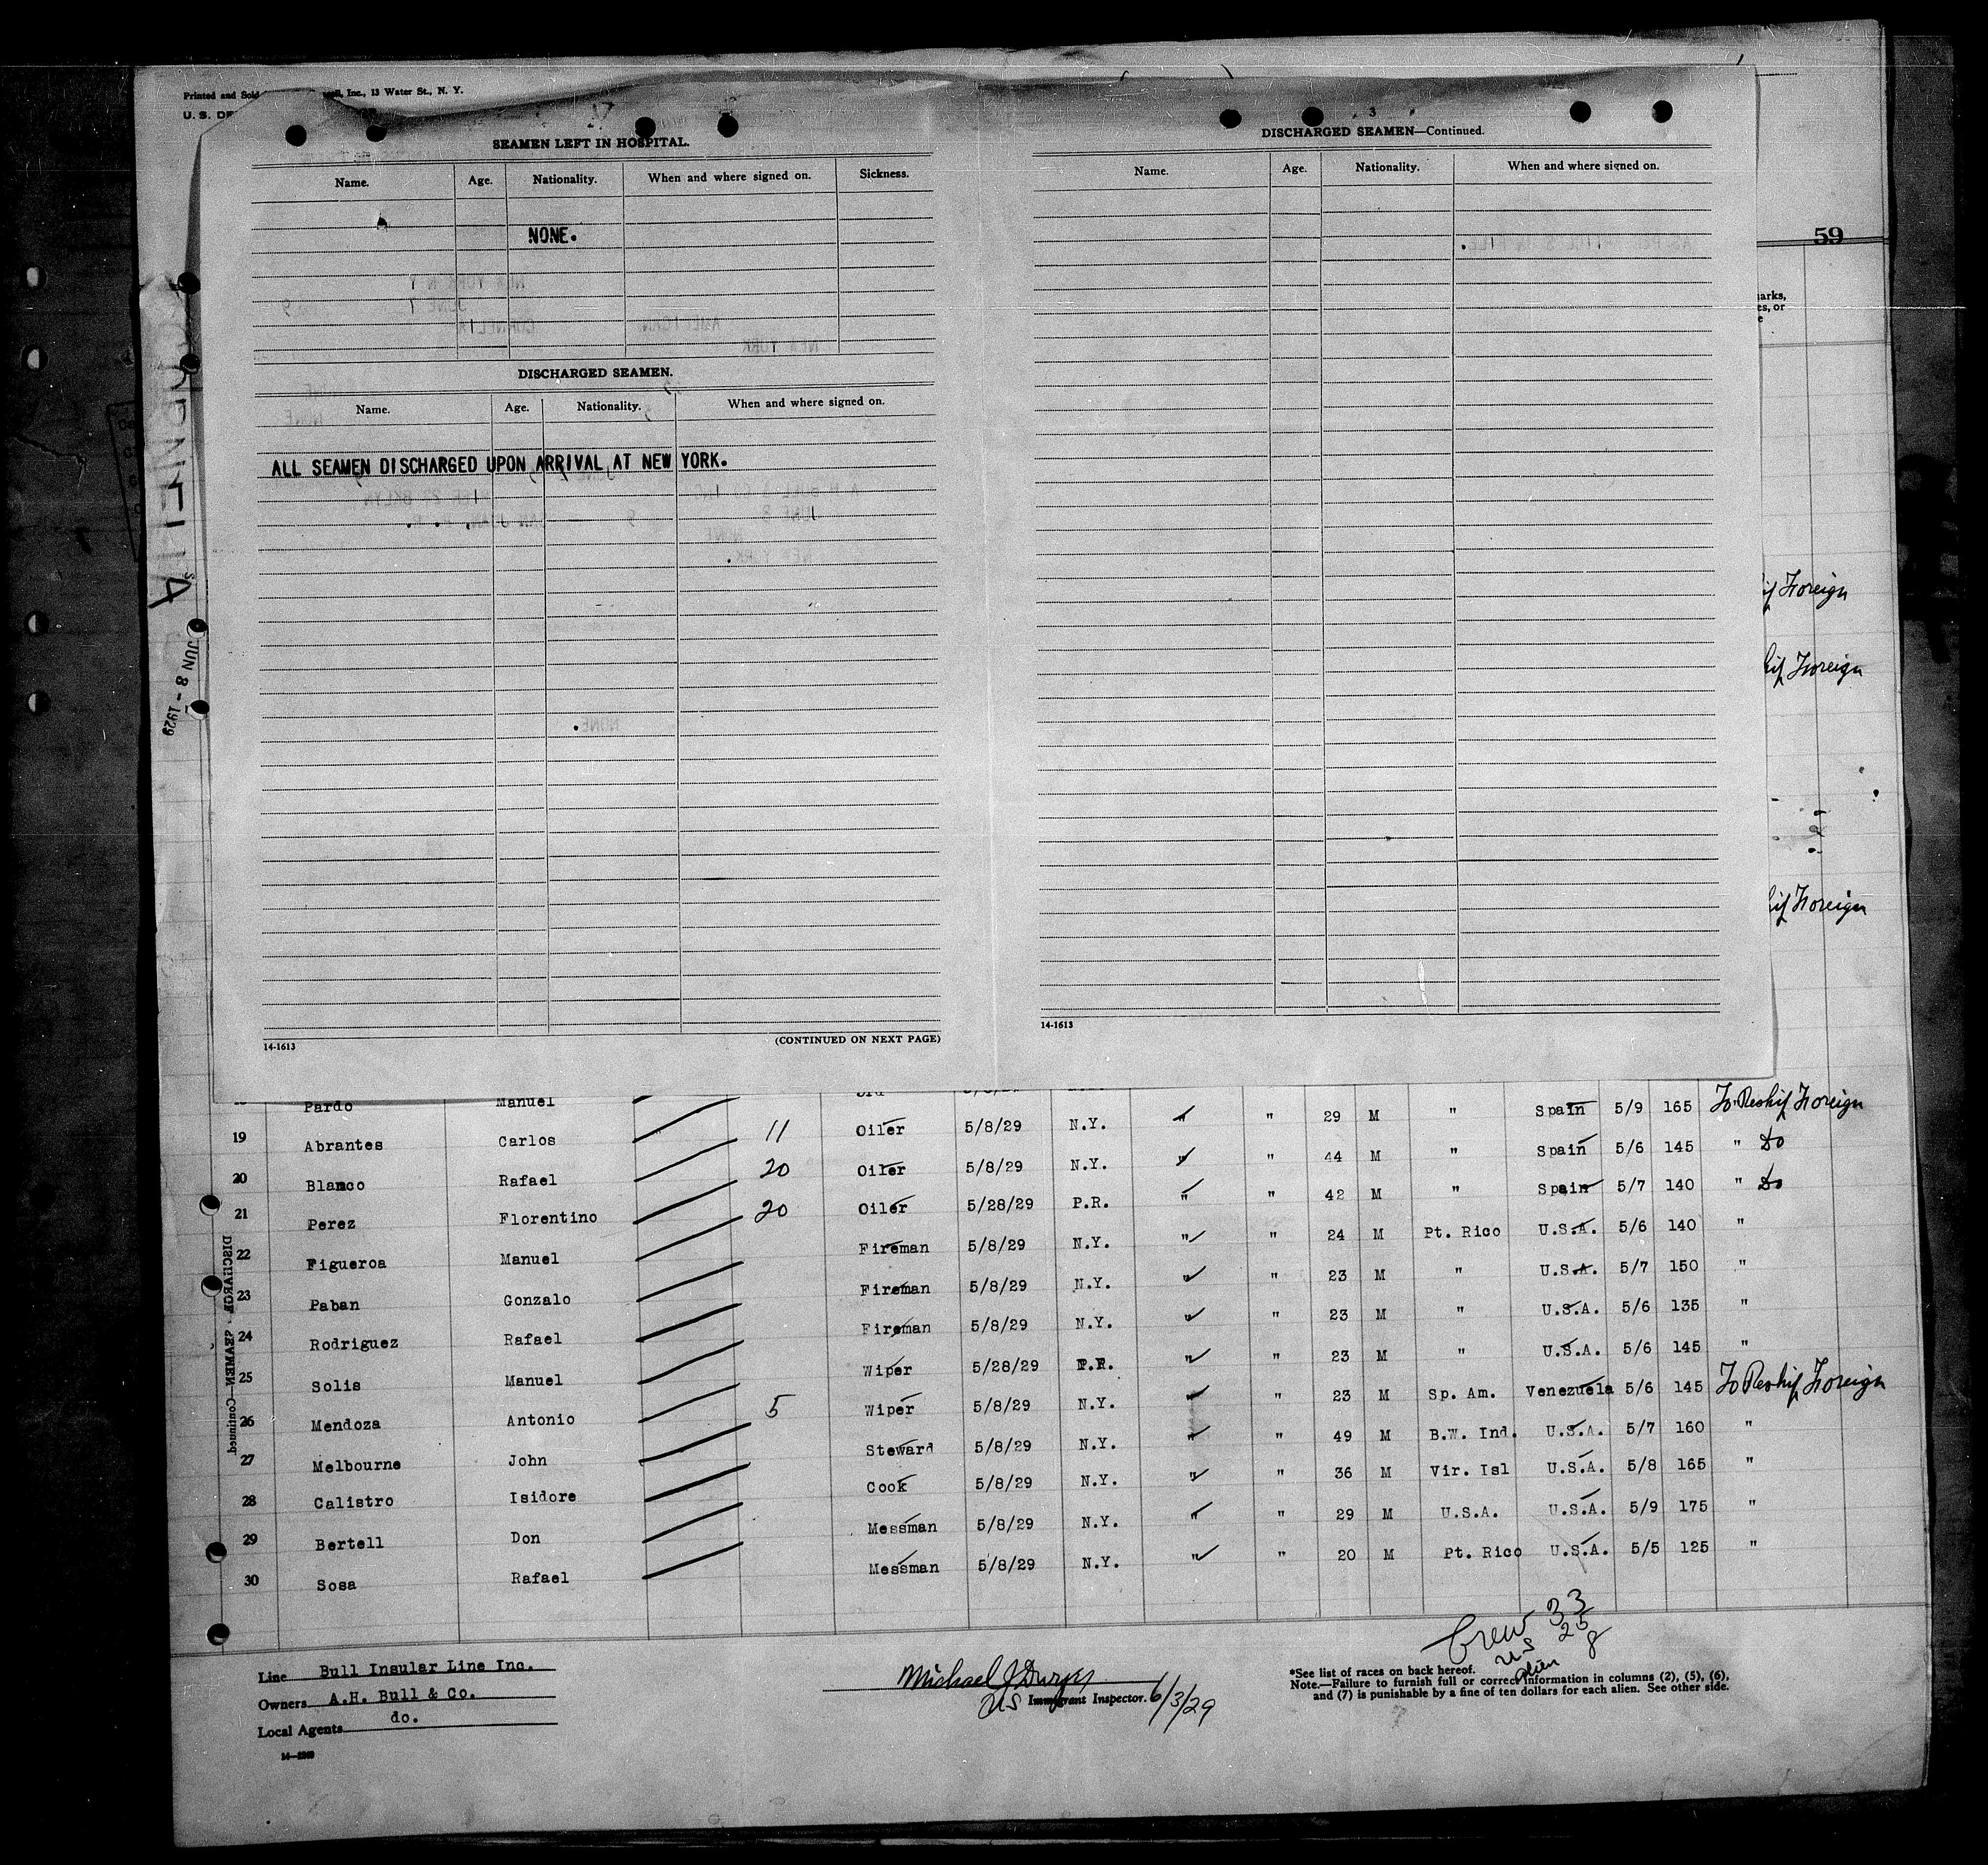 Printed and Sold
Inc., 13 Water St., N. Y.
U. S. DE
59
arks,
es, or
e
SEAMEN LEFT IN HOSPITAL.
Name. Age. Nationality. When and where signed on. Sickness.
NONE.
DISCHARGED SEAMEN.
Name. Age. Nationality. When and where signed on.
ALL SEAMEN DISCHARGED UPON ARRIVAL AT NEW YORK.
14-1613 (CONTINUED ON NEXT PAGE)
3
DISCHARGED SEAMEN—Continued.
Name. Age. Nationality. When and where signed on.
14-1613
JUN 8 - 1929
if Foreign
hif Foreign
hif Foreign
DISCHARGED SEAMEN—Continued
Pardo Manuel 3rd
19 Abrantes Carlos 11 Oiler 5/8/29 N.Y. " " 29 M " Spain 5/9 165 To Reship Foreign
20 Blanco Rafael 20 Oiler 5/8/29 N.Y. " " 44 M " Spain 5/6 145 " do
21 Perez Florentino 20 Oiler 5/28/29 P.R. " " 42 M " Spain 5/7 140 " do
22 Figueroa Manuel Fireman 5/8/29 N.Y. " " 24 M Pt. Rico U.S.A. 5/6 140 "
23 Paban Gonzalo Fireman 5/8/29 N.Y. " " 23 M " U.S.A. 5/7 150 "
24 Rodriguez Rafael Fireman 5/8/29 N.Y. " " 23 M " U.S.A. 5/6 135 "
25 Solis Manuel Wiper 5/28/29 P.R. " " 23 M " U.S.A. 5/6 145 "
26 Mendoza Antonio 5 Wiper 5/8/29 N.Y. " " 23 M Sp. Am. Venezuela 5/6 145 To Reship Foreign
27 Melbourne John Steward 5/8/29 N.Y. " " 49 M B.W. Ind. U.S.A. 5/7 160 "
28 Calistro Isidore Cook 5/8/29 N.Y. " " 36 M Vir. Isl U.S.A. 5/8 165 "
29 Bertell Don Messman 5/8/29 N.Y. " " 29 M U.S.A. U.S.A. 5/9 175 "
30 Sosa Rafael Messman 5/8/29 N.Y. " " 20 M Pt. Rico U.S.A. 5/5 125 "
Crew 33
US 25
Alien 8
Line Bull Insular Line Inc.
Owners A.H. Bull & Co.
Local Agents do.
Michael J
US Immigrant Inspector. 6/3/29
*See list of races on back hereof.
Note.—Failure to furnish full or correct information in columns (2), (5), (6),
and (7) is punishable by a fine of ten dollars for each alien. See other side.